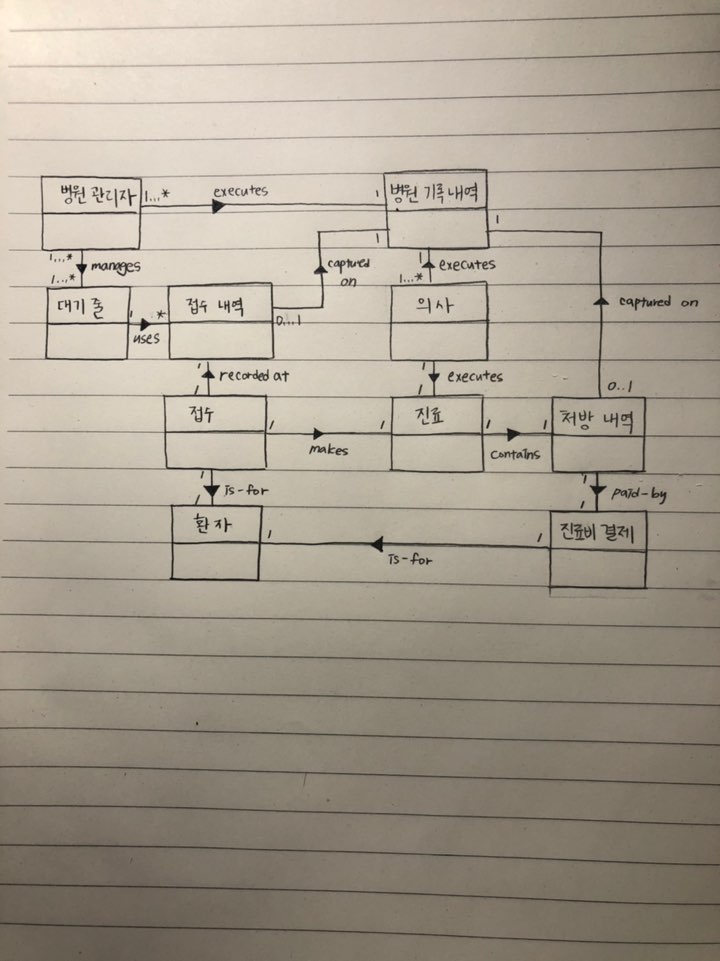 병원 관리자
1...*
executes
1
병원 기록 내역
1
1
1...*
manages
1...*
captured
on
1...*
executes
대기 줄
1
*
uses
접수 내역
0...1
의사
captured on
1
recorded at
1
1
executes
1
0..1
접수
1
makes
1
진료
1
contains
1
처방 내역
1
is-for
1
1
paid-by
1
환자
1
is-for
1
진료비 결제